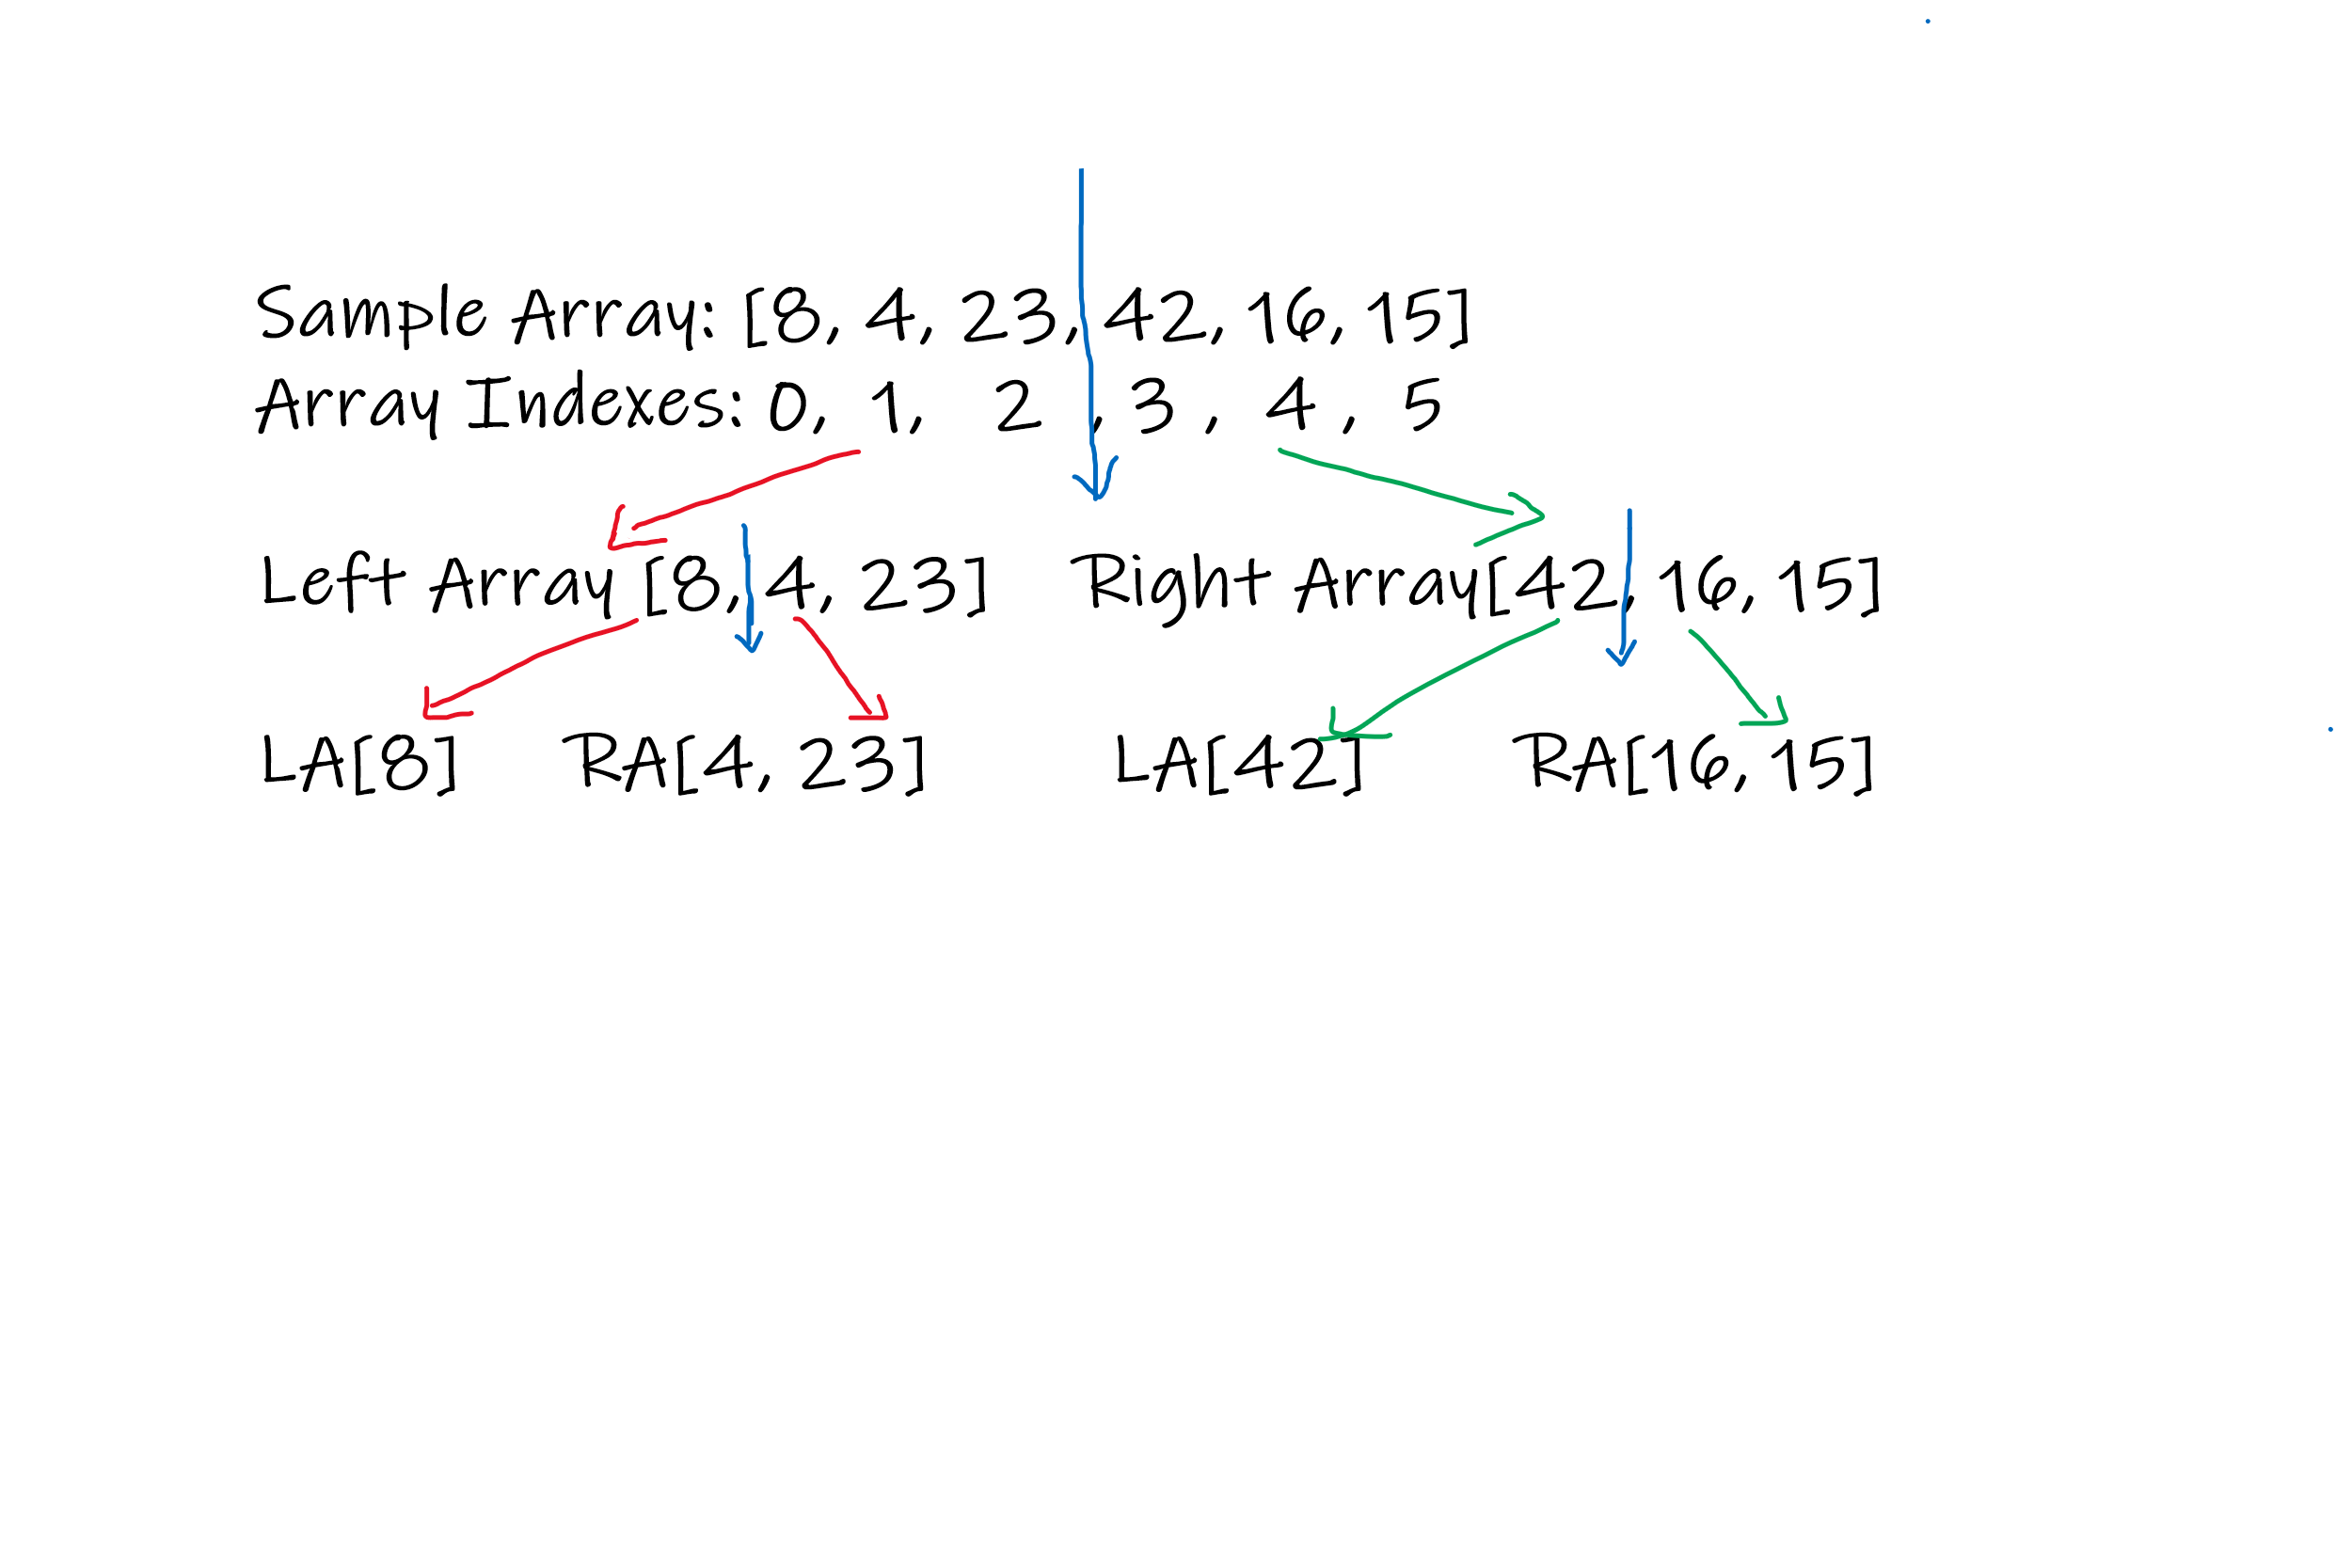 Sample Array: [8, 4, 23, 42, 16, 15]
Array Indexes: 0, 1, 2 , 3 , 4 , 5
Left Array [8, 4, 23] Right Array[42, 16, 15]
LA[8] RA[4, 23] LA[42] RA[16, 15]